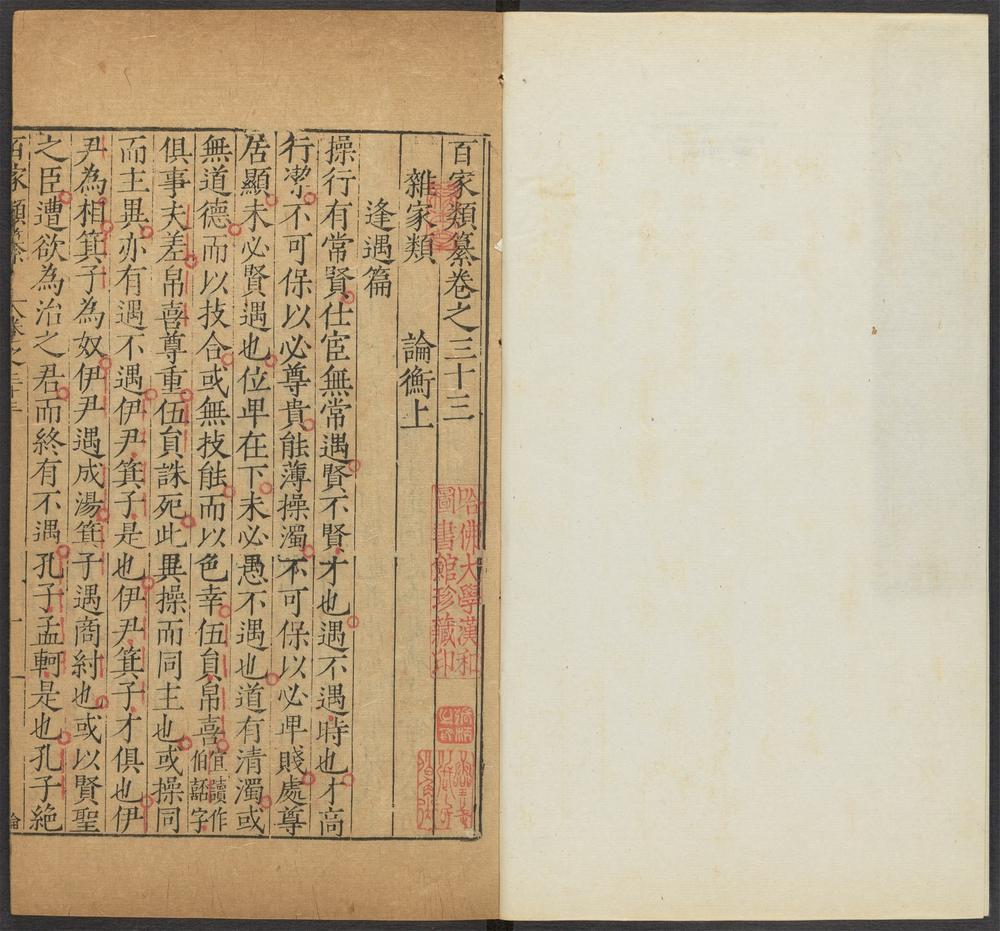 百家類纂卷之三十三
雜家類 論衡上
逢遇篇
操行有常賢仕宦無常遇賢不賢才也遇不遇時也才高
行㓗不可保以必尊貴能薄操濁不可保以必卑賤處尊
居顯未必賢遇也位卑在下未必愚不遇也道有清濁或
無道德而以技合或無技能而以色幸伍員帛喜宜讀作伯嚭字
俱事夫差帛喜尊重伍員誅死此異操而同主也或操同
而主異亦有遇不遇伊尹箕子是也伊尹箕子才俱也伊
尹為相箕子為奴伊尹遇成湯箕子遇商紂也或以賢聖
之臣遭欲為治之君而終有不遇孔子孟軻是也孔子絶
百家類纂 卷之三十三 一 論
哈佛大學漢和
圖書館珍藏印